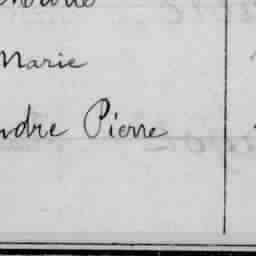 Marie
ndre Pierre